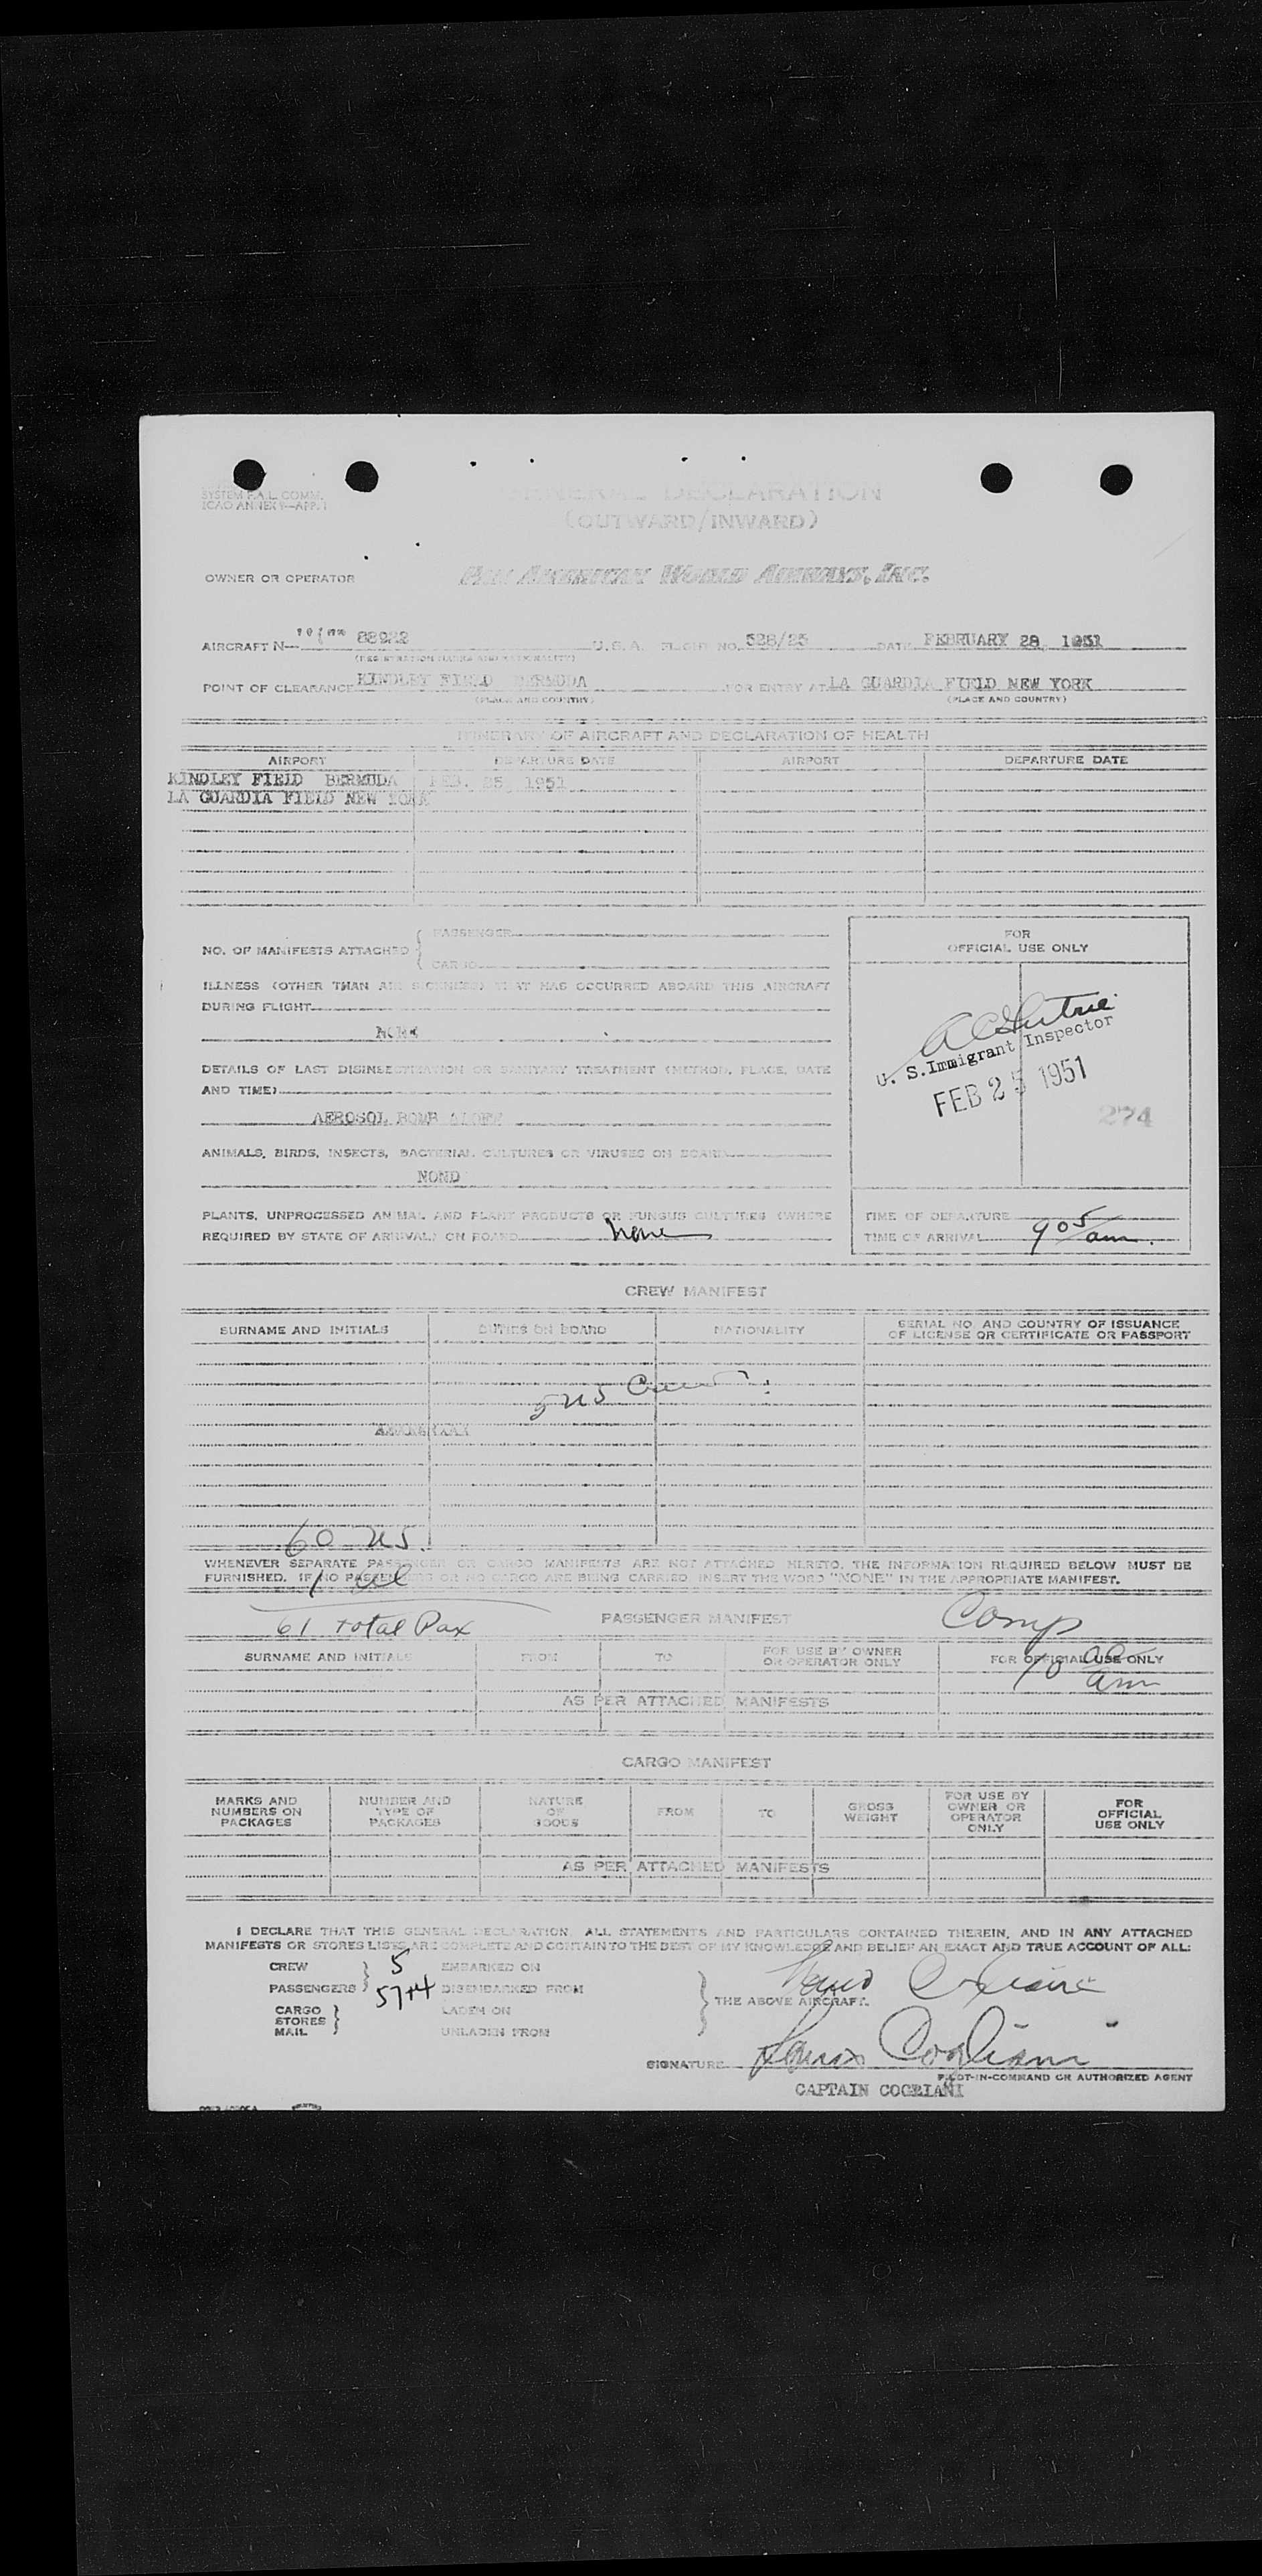 SYSTEM F.A.L. COMM.
ICAO ANNEX 9—APP. 1
GENERAL DECLARATION
(OUTWARD/INWARD)
OWNER OR OPERATOR PAN AMERICAN WORLD AIRWAYS, INC.
AIRCRAFT N— 88922 U.S.A. FLIGHT NO. 526/25 DATE FEBRUARY 28, 1951
(REGISTRATION MARKS AND NATIONALITY)
POINT OF CLEARANCE KINDLEY FIELD BERMUDA FOR ENTRY AT LA GUARDIA FIELD NEW YORK
(PLACE AND COUNTRY) (PLACE AND COUNTRY)
ITINERARY OF AIRCRAFT AND DECLARATION OF HEALTH
AIRPORT DEPARTURE DATE AIRPORT DEPARTURE DATE
KINDLEY FIELD BERMUDA FEB. 25, 1951
LA GUARDIA FIELD NEW YORK
NO. OF MANIFESTS ATTACHED { PASSENGER
CARGO
ILLNESS (OTHER THAN AIR SICKNESS) THAT HAS OCCURRED ABOARD THIS AIRCRAFT
DURING FLIGHT
NONE
DETAILS OF LAST DISINSECTIZATION OR SANITARY TREATMENT (METHOD, PLACE, DATE
AND TIME)
AEROSOL BOMB
ANIMALS, BIRDS, INSECTS, BACTERIAL CULTURES OR VIRUSES ON BOARD
NOND
PLANTS, UNPROCESSED ANIMAL AND PLANT PRODUCTS OR FUNGUS CULTURES (WHERE
REQUIRED BY STATE OF ARRIVAL) ON BOARD None
FOR
OFFICIAL USE ONLY
U. S. Immigrant Inspector
FEB 25 1951
274
TIME OF DEPARTURE
TIME OF ARRIVAL 905 am.
CREW MANIFEST
SURNAME AND INITIALS DUTIES ON BOARD NATIONALITY SERIAL NO. AND COUNTRY OF ISSUANCE
OF LICENSE OR CERTIFICATE OR PASSPORT
5 US Crew
60 US.
WHENEVER SEPARATE PASSENGER OR CARGO MANIFESTS ARE NOT ATTACHED HERETO, THE INFORMATION REQUIRED BELOW MUST BE
FURNISHED. IF NO PASSENGERS OR NO CARGO ARE BEING CARRIED, INSERT THE WORD "NONE" IN THE APPROPRIATE MANIFEST.
1 al
61 total Pax
PASSENGER MANIFEST
Comp
SURNAME AND INITIALS FROM TO FOR USE BY OWNER
OR OPERATOR ONLY FOR OFFICIAL USE ONLY
10 am
AS PER ATTACHED MANIFESTS
CARGO MANIFEST
MARKS AND
NUMBERS ON
PACKAGES NUMBER AND
TYPE OF
PACKAGES NATURE
OF
GOODS FROM TO GROSS
WEIGHT FOR USE BY
OWNER OR
OPERATOR
ONLY FOR
OFFICIAL
USE ONLY
AS PER ATTACHED MANIFESTS
I DECLARE THAT THIS GENERAL DECLARATION, ALL STATEMENTS AND PARTICULARS CONTAINED THEREIN, AND IN ANY ATTACHED
MANIFESTS OR STORES LISTS ARE COMPLETE AND CONTAIN TO THE BEST OF MY KNOWLEDGE AND BELIEF AN EXACT AND TRUE ACCOUNT OF ALL:
CREW 5 EMBARKED ON
PASSENGERS 57+4 DISEMBARKED FROM
CARGO LADEN ON
STORES
MAIL UNLADEN FROM
THE ABOVE AIRCRAFT.
SIGNATURE Cogliani
PILOT-IN-COMMAND OR AUTHORIZED AGENT
CAPTAIN COGLIANI